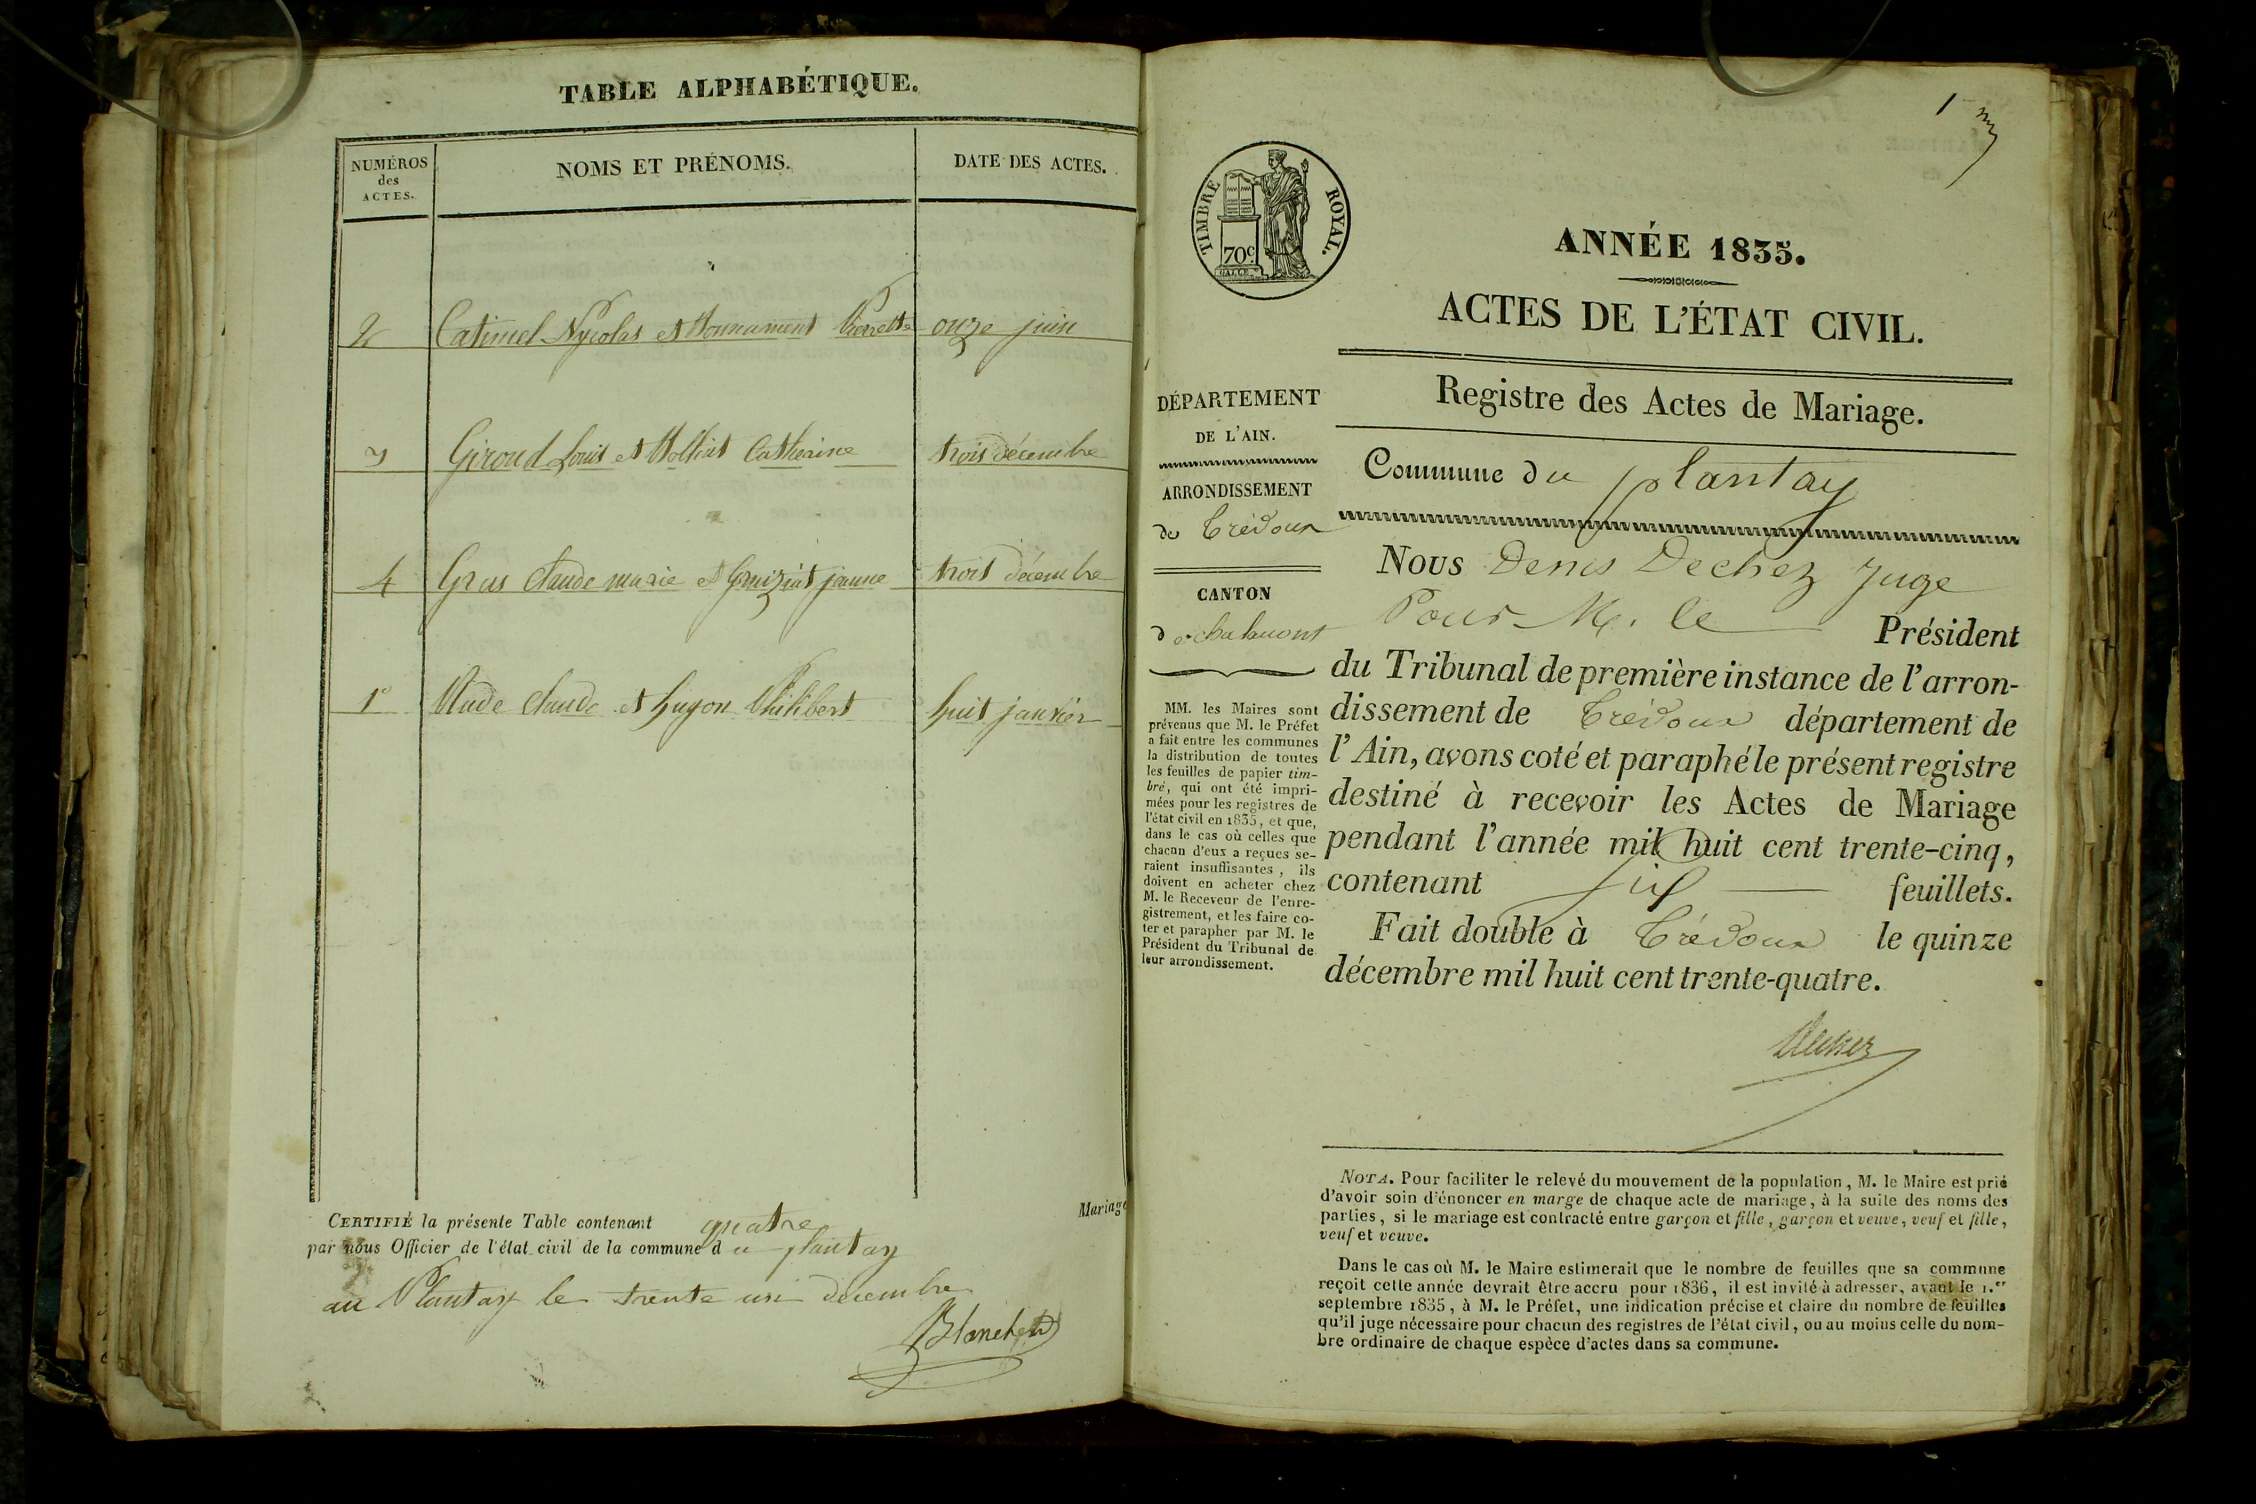 TABLE ALPHABÉTIQUE.
NUMÉROS
des
ACTES.
NOMS ET PRÉNOMS.
DATE DES ACTES.
2 Catimel Nycolas et Monnament Pierrette onze juin
3 Giroud Louis et Catherine trois décembre
4 Gras Claude marie et Gruiziat jeanne trois décembre
1º Claude et Guyon Philibert huit janvier
CERTIFIÉ la présente Table contenant quatre
par nous Officier de l'état civil de la commune du plantay
au Plantay le trente un décembre
Blanchet
Mariage
1
TIMBRE ROYAL.
70c.
ANNÉE 1835.
ACTES DE L'ÉTAT CIVIL.
Registre des Actes de Mariage.
Commune du plantay
DÉPARTEMENT
DE L'AIN.
ARRONDISSEMENT
de Trévoux
CANTON
de chalamont
MM. les Maires sont
prévenus que M. le Préfet
a fait entre les communes
la distribution de toutes
les feuilles de papier tim-
bré, qui ont été impri-
mées pour les registres de
l'état civil en 1835, et que,
dans le cas où celles que
chacun d'eux a reçues se-
raient insuffisantes, ils
doivent en acheter chez
M. le Receveur de l'enre-
gistrement, et les faire co-
ter et parapher par M. le
Président du Tribunal de
leur arrondissement.
Nous Denis Dechez Juge
Pour M. le Président
du Tribunal de première instance de l'arron-
dissement de Trévoux département de
l'Ain, avons coté et paraphé le présent registre
destiné à recevoir les Actes de Mariage
pendant l'année mil huit cent trente-cinq,
contenant six feuillets.
Fait double à Trévoux le quinze
décembre mil huit cent trente-quatre.
Dechez
NOTA. Pour faciliter le relevé du mouvement de la population, M. le Maire est prié
d'avoir soin d'énoncer en marge de chaque acte de mariage, à la suite des noms des
parties, si le mariage est contracté entre garçon et fille, garçon et veuve, veuf et fille,
veuf et veuve.
Dans le cas où M. le Maire estimerait que le nombre de feuilles que sa commune
reçoit cette année devrait être accru pour 1836, il est invité à adresser, avant le 1.er
septembre 1835, à M. le Préfet, une indication précise et claire du nombre de feuilles
qu'il juge nécessaire pour chacun des registres de l'état civil, ou au moins celle du nom-
bre ordinaire de chaque espèce d'actes dans sa commune.